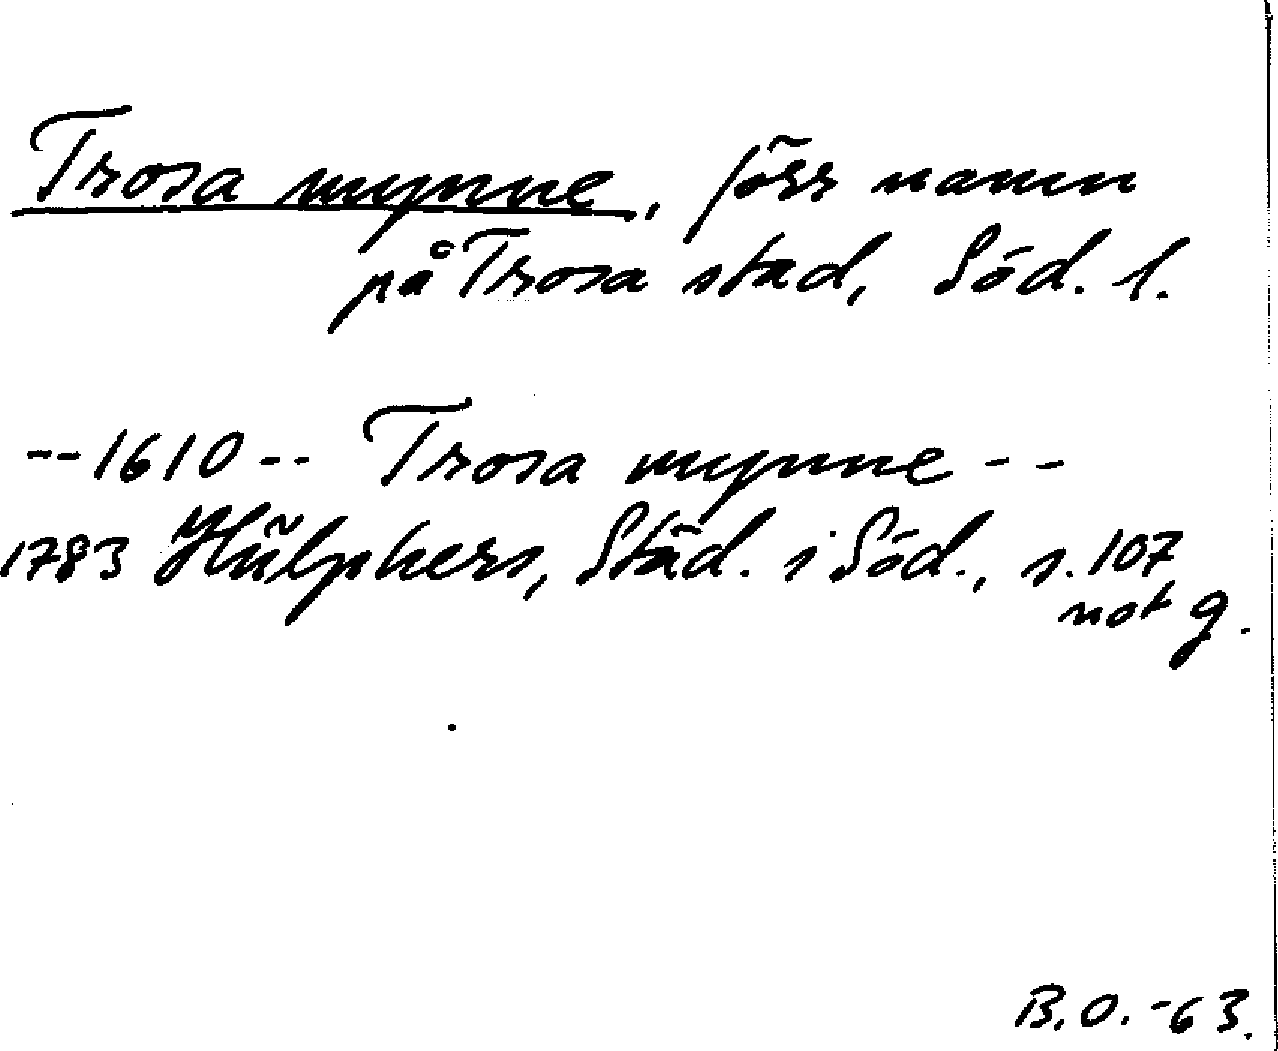 Trosa mynne, förr namn
på Trosa stad, Söd. l.
--1610-- Trosa mynne--
1783 Hülphers, Städ. i Söd., s. 107
not g.
B.O.-63.